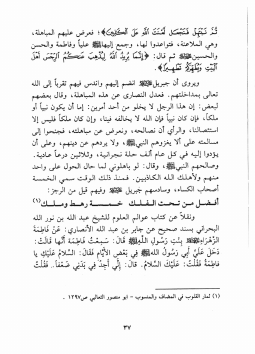 ثُمَّ نَبْتَهِلْ فَنَجْعَل لَّعْنَتَ اللَّهِ عَلَى الْكَاذِبِينَ﴾؛ فعرض عليهم المباهلة،
وهي الملاعنة، فتواعدوا لها، وجمع إليها ﷺ علياً وفاطمة والحسن
والحسين ﷺ ثم قال: ﴿إِنَّمَا يُرِيدُ اللَّهُ لِيُذْهِبَ عَنكُمُ الرِّجْسَ أَهْلَ
الْبَيْتِ وَيُطَهِّرَكُمْ تَطْهِيرًا﴾.
ويروى أن جبريل انضم إليهم واندس فيهم تقرباً إلى الله
تعالى بمداخلتهم. فعدل النصارى عن هذه المباهلة، وقال بعضهم
لبعض: إن هذا الرجل لا يخلو من أحد أمرين: إما أن يكون نبياً أو
ملكاً، فإن كان نبياً فإن الله لا يخالفه فينا، وإن كان ملكاً فليس إلا
استئصالنا، والرأي أن نصالحه، ونعرض عن مباهلته، فجنحوا إلى
مسالمته على ألا يغزوهم النبي ﷺ، ولا يردهم عن دينهم، وعلى أن
يؤدوا إليه في كل عام ألف حلة نجرانية، وثلاثين درعاً عادية.
وصالحهم النبي ﷺ، وقال: لو باهلوني لما حال الحول على واحد
منهم ولأهلك الله الكاذبين. فمنذ ذلك الوقت سمي الخمسة
أصحاب الكساء، وسادسهم جبريل وفيهم قيل من الرجز:
أفضل من تحت الفلك خمسة رهط وملك (١)
ونقلاً عن كتاب عوالم العلوم للشيخ عبد الله بن نور الله
البحراني بسند صحيح عن جابر بن عبد الله الأنصاري: عَنْ فَاطِمَةَ
الزَّهْرَاءِ بِنْتِ رَسُولِ اللهِ ﷺ قَالَ: سَمِعْتُ فَاطِمَةَ أَنَّهَا قَالَتْ:
دَخَلَ عَلَيَّ أَبِي رَسُولُ اللهِ ﷺ فِي بَعْضِ الأَيَّامِ فَقَالَ: السَّلامُ عَلَيْكِ يَا
فَاطِمَةُ فَقُلْتُ: عَلَيْكَ السَّلامُ. قَالَ: إِنِّي أَجِدُ فِي بَدَنِي ضَعْفاً.. فَقُلْتُ
(١) ثمار القلوب في المضاف والمنسوب - ابو منصور الثعالبي ص١٢٩٧.
٣٧